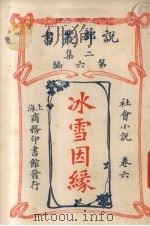 說部叢書
二集
第六編
社會小說 卷六
冰雪因緣
上海
商務印書館發行